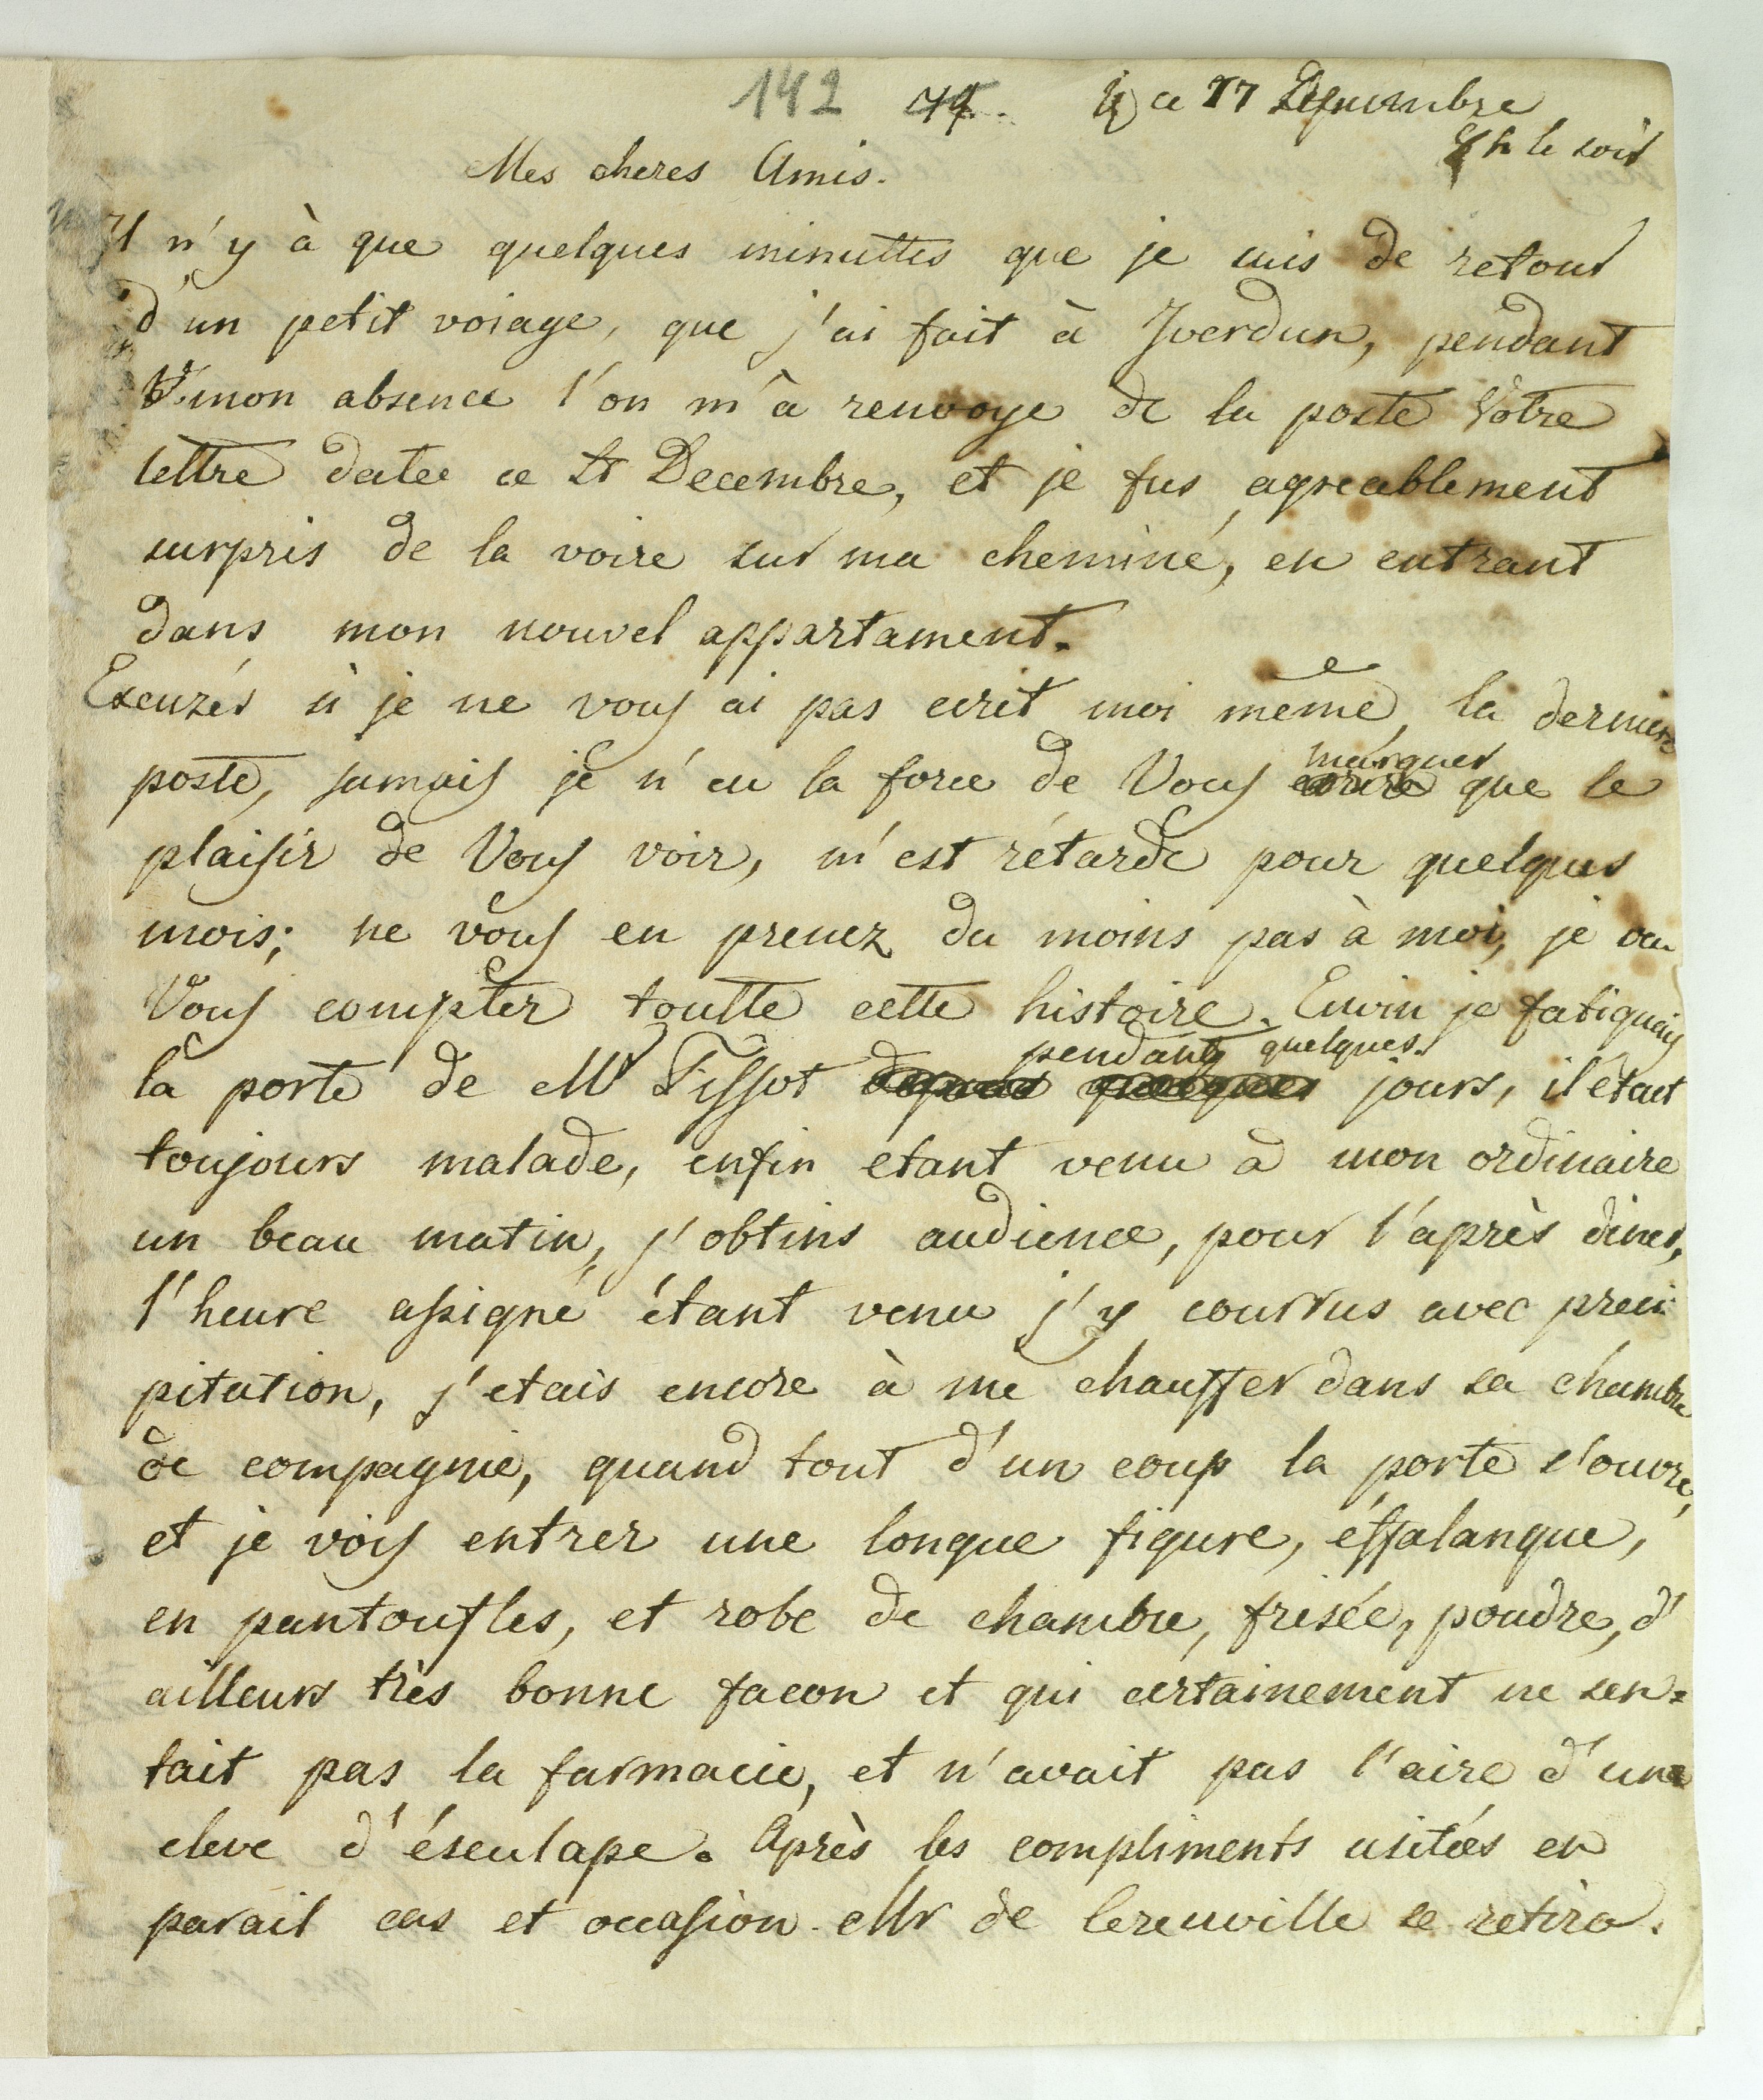 142 ce 17
8 h le soir
Mes cheres Amis.
Il n'y à que quelques minuttes que je suis de retour
d'un petit voiage, que j'ai fait à Jverdun, pendant
mon absence l'on m'à renvoye de la poste Votre
lettre datee ce Decembre, et je fus agreablement
surpris de la voire sur ma cheminé, en entrant
dans mon nouvel appartament.
Excuzés si je ne vous ai pas ecrit moi même la derniere
poste, jamais je n'eu la force de Vous marquer que le
plaisir de Vous voir, m'est rétardé pour quelques
mois; ne vous en prenez du moins pas à moi, je va
Vous compter toutte cette histoire. je fatiguais
la porte de Mr Tissot pendant quelques jours, il étoit
toujours malade, enfin etant venu a mon ordinaire
un beau matin, j'obtins audience, pour l'après diner,
l'heure assigné étant venu j'y courrus avec preci
pitation, j'etais encore à me chauffer dans sa chambre
de compagnie, quand tout d'un coup la porte s'ouvre,
et je vois entrer une longue figure, éffalanque,
en pantoufles, et robe de chambre, frisée, poudre, d'
ailleurs très bonne facon et qui certainement ne sen=
tait pas la farmacie, et n'avait pas l'aire d'un
eleve d'ésculape. Après les compliments usitées en
parail cas et occasion. Mr de lerenville se retira.